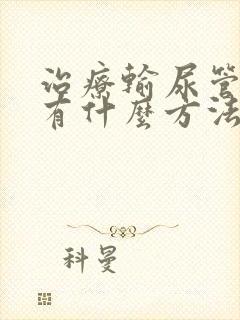 治療輸尿管
有什麼方法
科曼